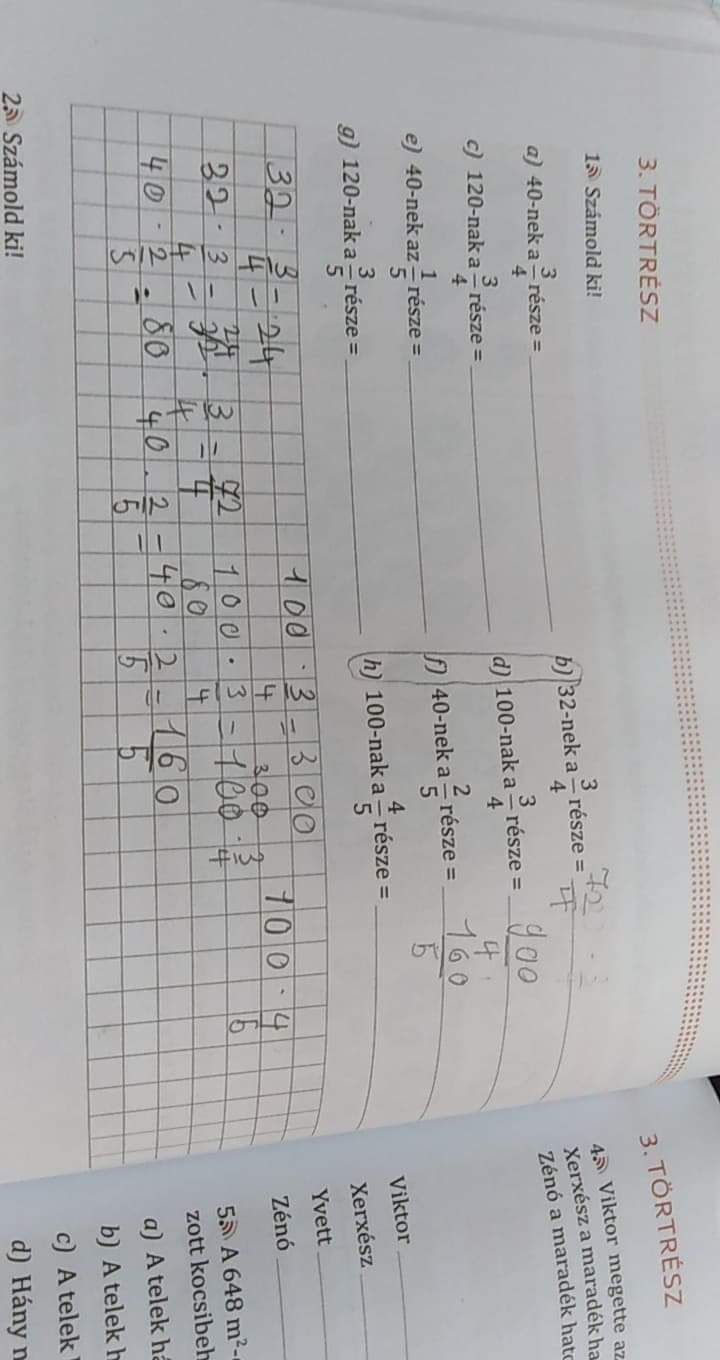 3. TÖRTRÉSZ
1. Számold ki!
a) 40-nek a 3/4 része =
b) 32-nek a 3/4 része = 72/4
c) 120-nak a 3/4 része =
d) 100-nak a 3/4 része = 900/4
e) 40-nek az 1/5 része =
f) 40-nek a 2/5 része = 160/5
g) 120-nak a 3/5 része =
h) 100-nak a 4/5 része =
32 · 3/4 = 24
100 · 3/4 = 300
100 · 4/5
32 · 3/4 = 24 · 3/4 = 72/4
100 · 3/4 = 300 · 3/4
40 · 2/5 = 80
40 · 2/5 = 80 40 · 2/5 = 160/5
2. Számold ki!
3. TÖRTRÉSZ
4. Viktor megette az
Xerxész a maradék ha
Zénó a maradék hato
Viktor
Xerxész
Yvett
Zénó
5. A 648 m²-
zott kocsibeh
a) A telek há
b) A telek h
c) A telek
d) Hány n